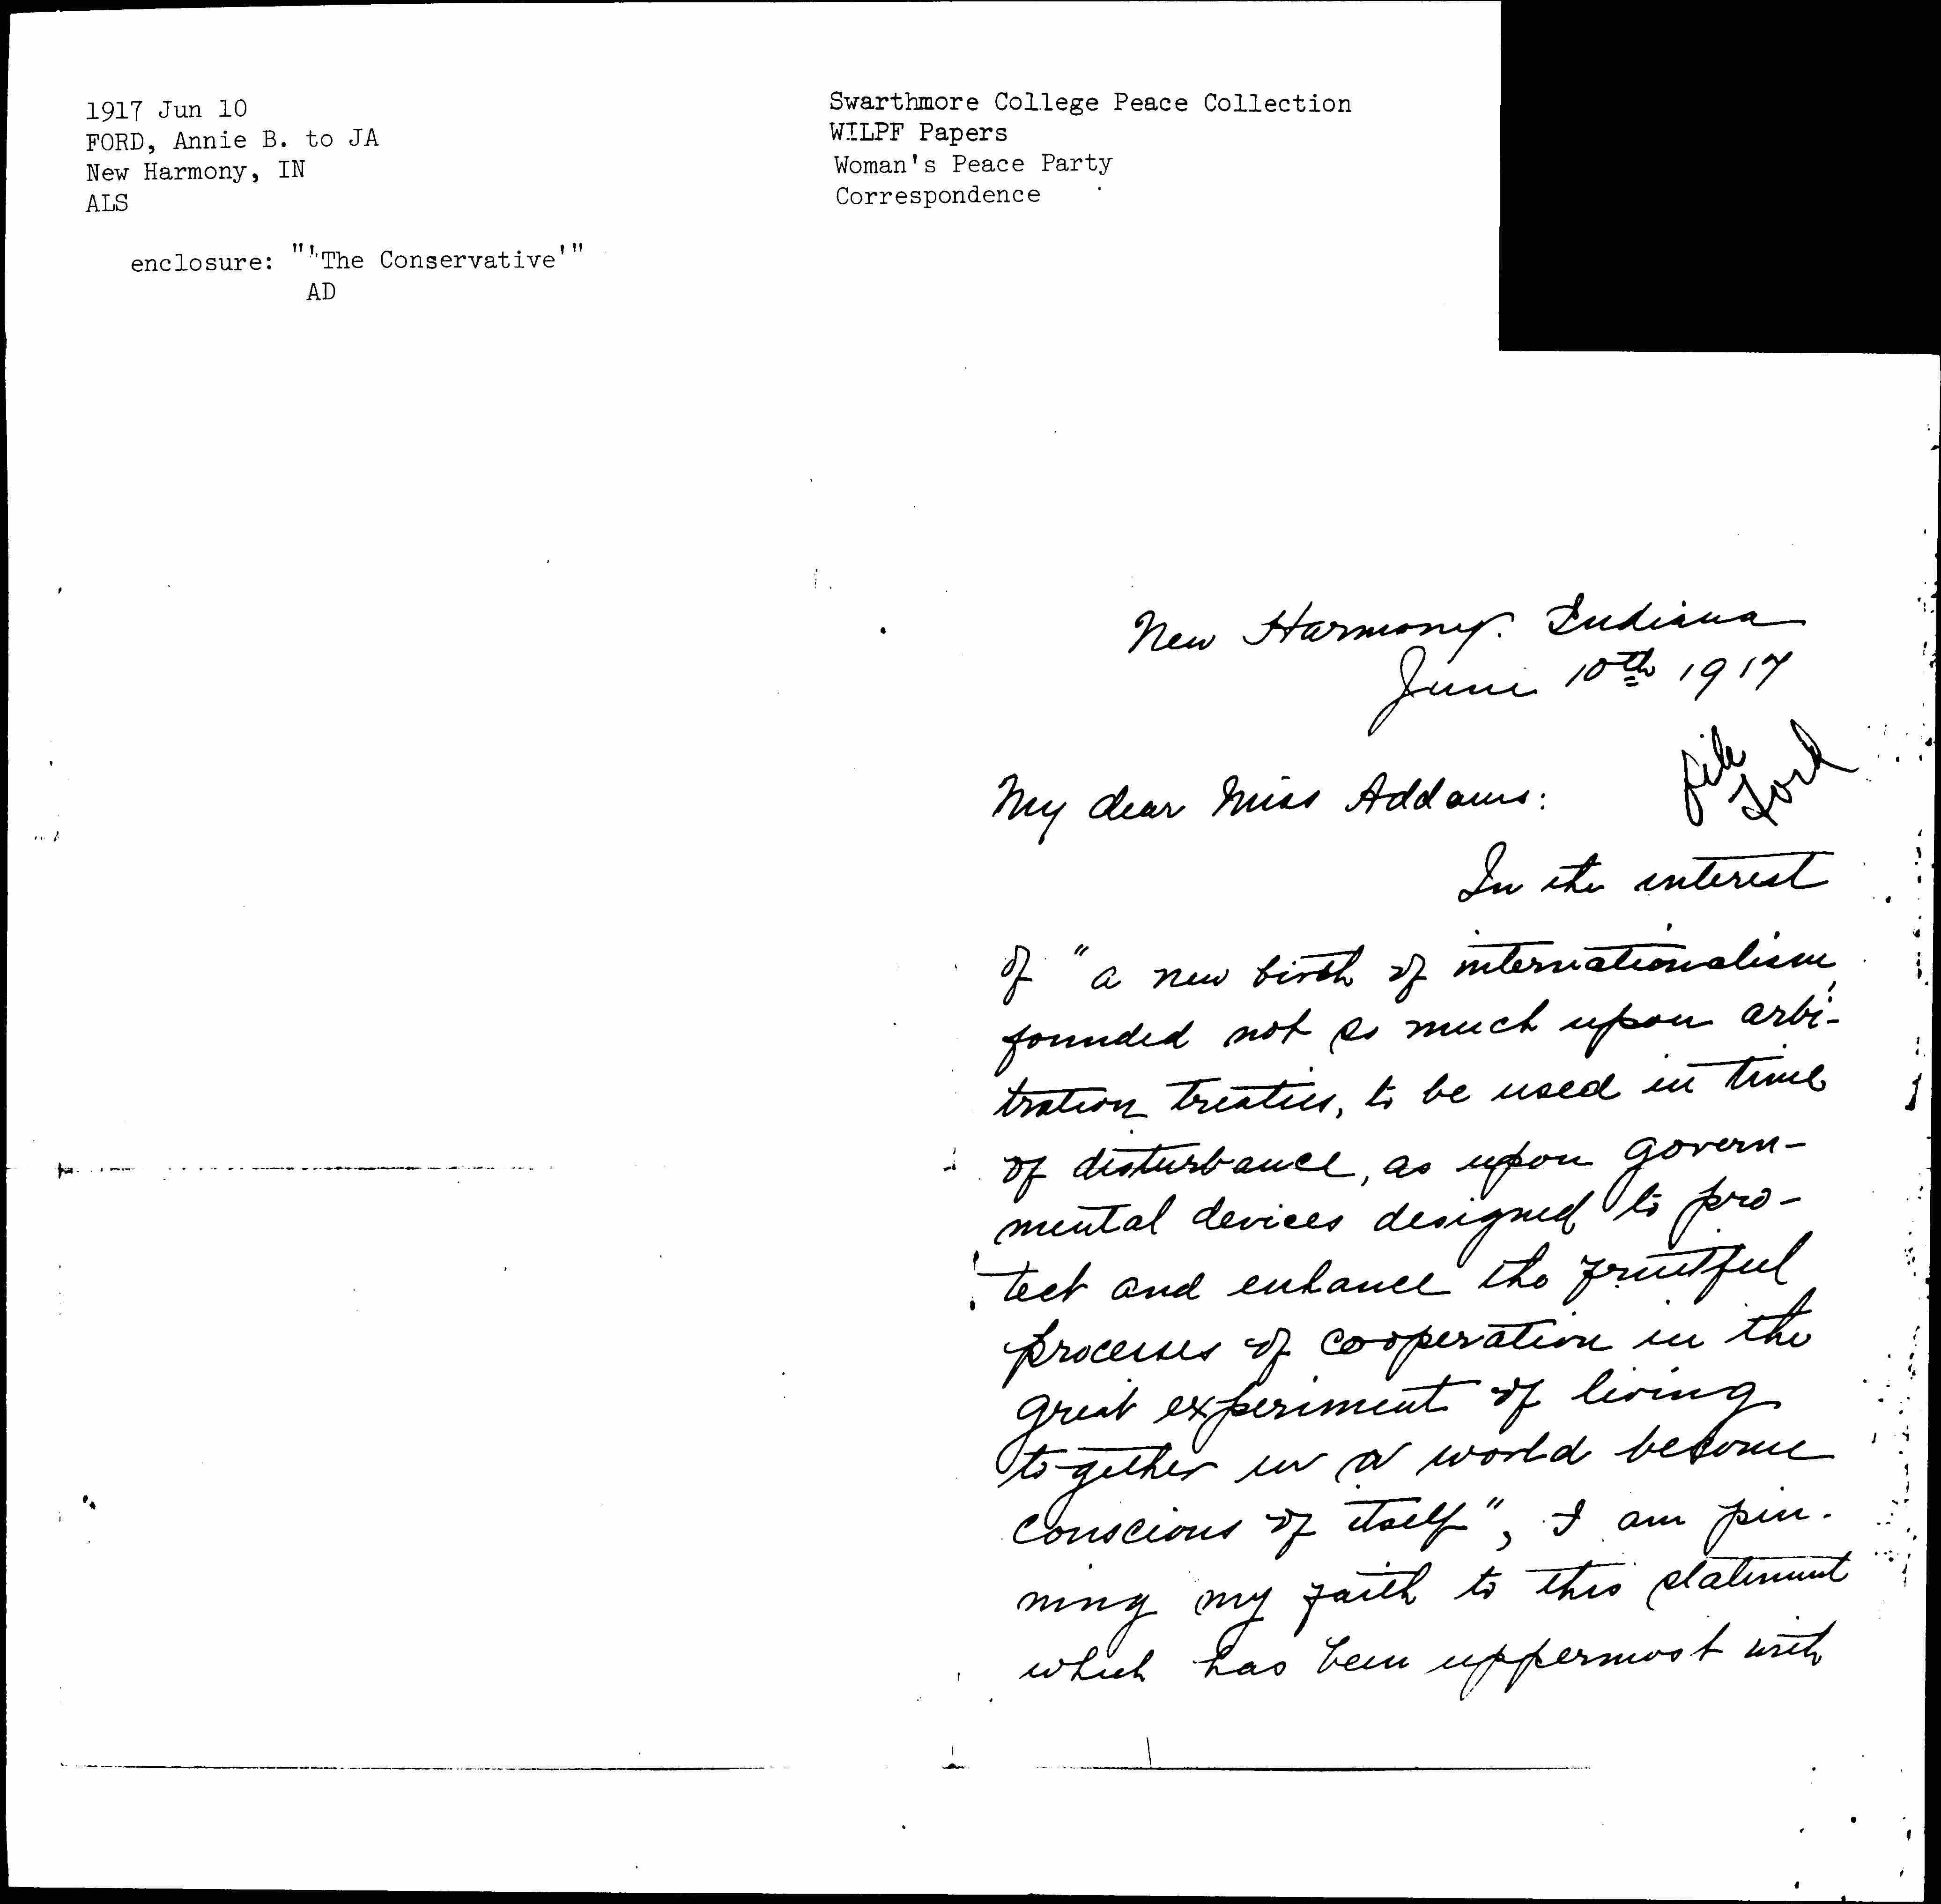 1917 Jun 10
FORD, Annie B. to JA
New Harmony, IN
ALS
enclosure: "'The Conservative'"
AD
Swarthmore College Peace Collection
WILPF Papers
Woman's Peace Party
Correspondence
New Harmony. Indiana
June 10th 1917
file
Ford
My dear Miss Addams:
In the interest
of "a new birth of internationalism,
founded not so much upon arbi-
tration treaties, to be used in time
of disturbance, as upon govern-
mental devices designed to pro-
tect and enhance the fruitful
processes of cooperation in the
great experiment of living
together in a world become
conscious of itself", I am pin-
ning my faith to this statement
which has been uppermost with